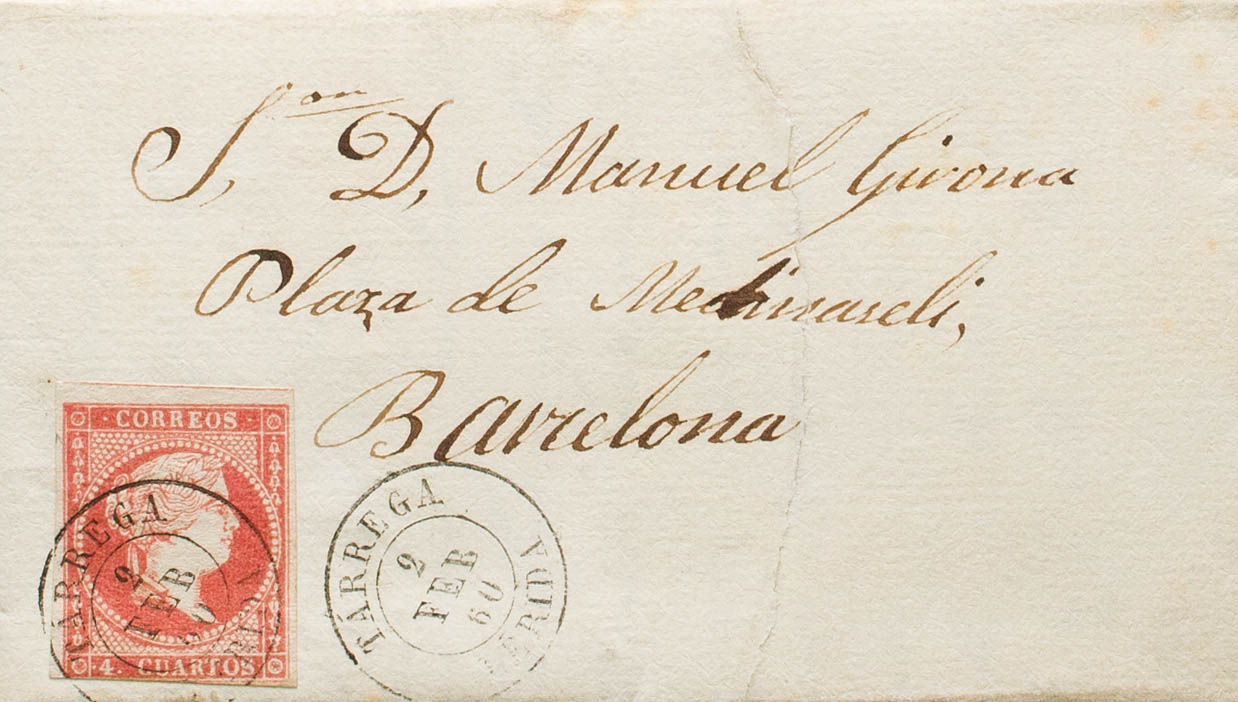 S.on D, Manuel Girona
Plaza de Medinaseli,
Barcelona
CORREOS
4. CUARTOS
TÁRREGA
2
FEB
60
LERIDA
TÁRREGA
2
FEB
60
LERIDA